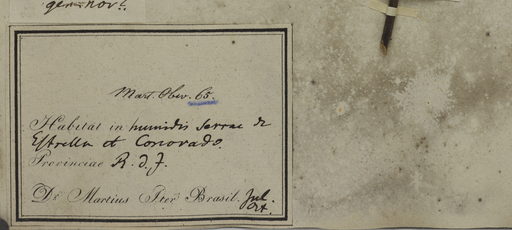 gen. nov.?
Mart. Obsv. 65.
Habitat in humidis Serrae de
Estrella et Corcovado.
Provinciae R. d. J.
Dr. Martius Iter Brasil. Jul.
Oct.